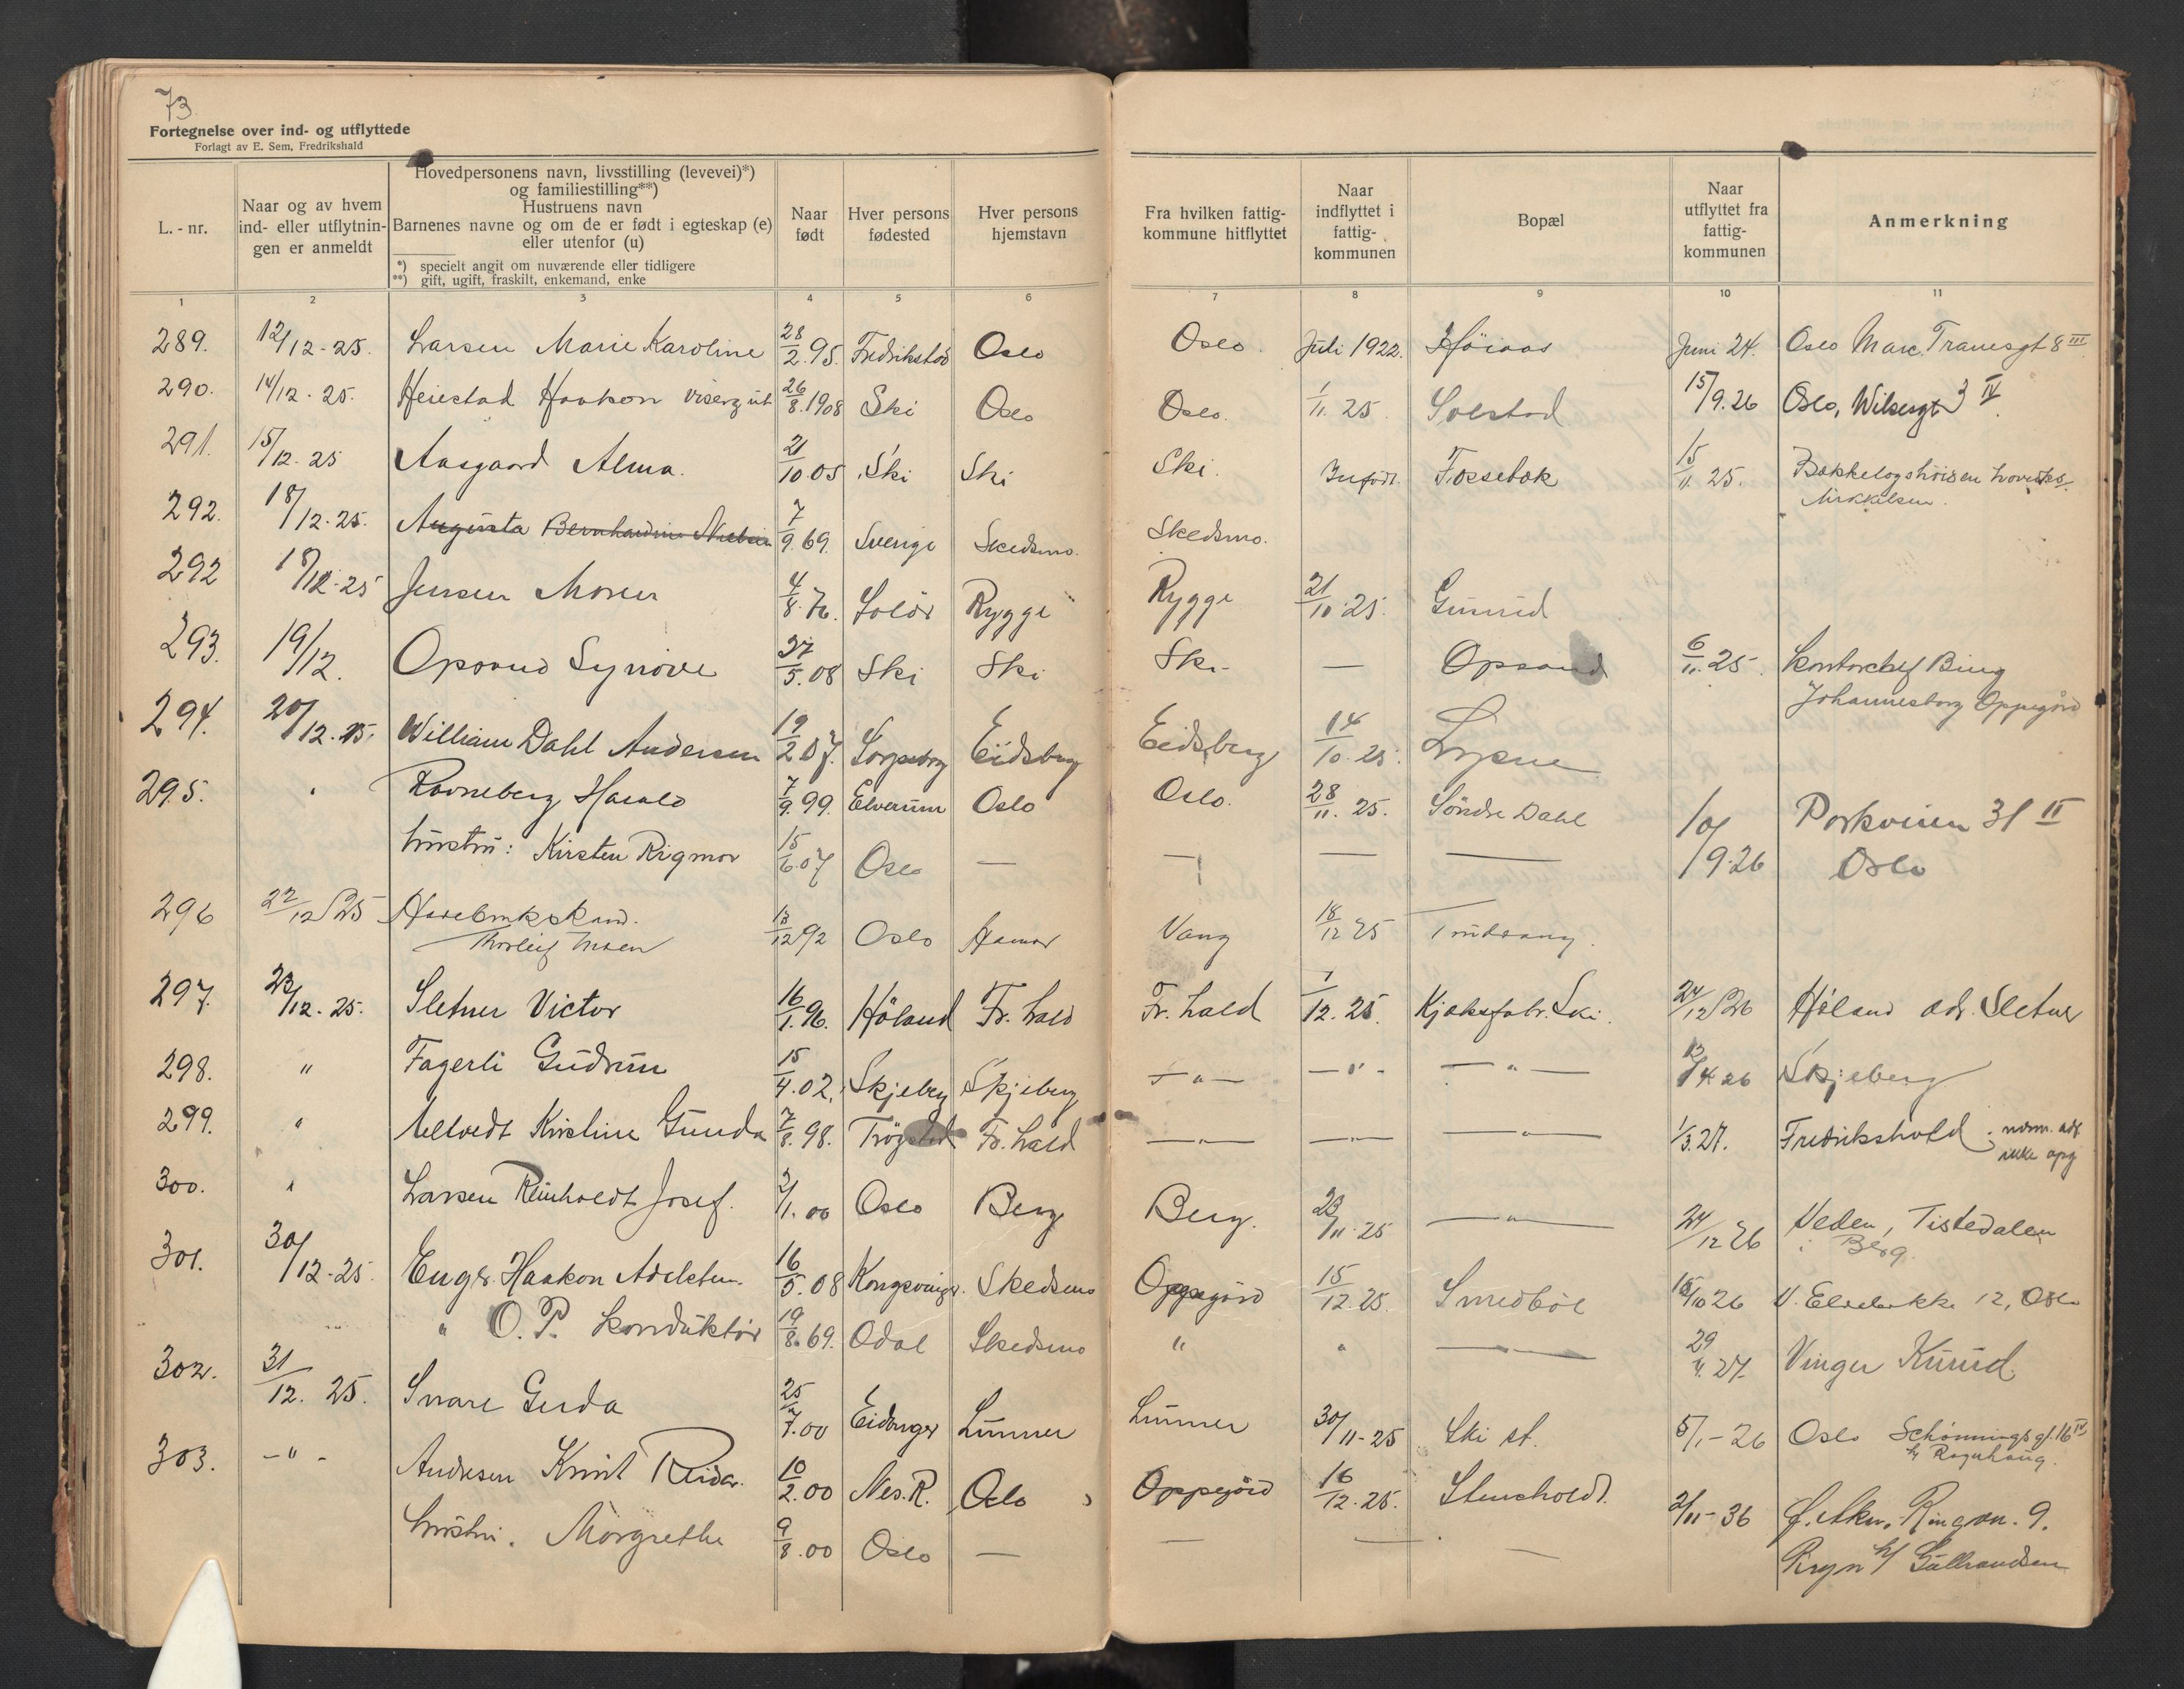 73
Fortegnelse over ind- og utflyttede
Forlagt av E. Sem, Fredrikshald
L. - nr. | Naar og av hvem ind- eller utflytnin- gen er anmeldt | Hovedpersonens navn, livsstilling (levevei)*) og familiestilling**) Hustruens navn Barnenes navne og om de er født i egteskap (e) eller utenfor (u) *) specielt angit om nuværende eller tidligere **) gift, ugift, fraskilt, enkemand, enke | Naar født | Hver persons fødested | Hver persons hjemstavn | Fra hvilken fattig- kommune hitflyttet | Naar indflyttet i fattig- kommunen | Bopæl | Naar utflyttet fra fattig- kommunen | Anmerkning
1 2 3 4 5 6 7 8 9 10 11
289. 12/12-25. Larsen Marie Karoline 28/2.95. Fredrikstad Oslo Oslo. Juli 1922. Juni 24. Oslo Marc. Tranesgt 8 III
290. 14/12.25. Heiestad Haakon 26/8.1908 Ski Oslo Oslo. 1/11 25. Solstad 15/9.26 Oslo, Wilsesgt 3 IV.
291. 15/12.25 Aasgaard Alma. 21/10 05 Ski Ski Ski. Indfødt. Fossebæk 15/11 25. Bækkelagshøisen
Mikkelsen.
292. 18/12.25. Augusta Bernhardine 7/9.69. Sverige Skedsmo. Skedsmo.
292 18/12-25 Jensen 4/8.76. Solør Rygge Rygge 21/10.25.
293. 19/12. Opsand Synøve 27/5.08 Ski Ski Ski — Opsand 6/11.25. Kontorchef Bing
Johannesborg Oppegård
294. 20/12.25. William Dahl Andersen 19/2 07. Sarpsborg Eidsberg Eidsberg 14/10.25.
295. " Ravneberg Harald 7/9.99. Elverum Oslo Oslo. 28/11.25. Søndre Dahl 10/9.26 Parkveien 31 II
hustru: Kirsten Rigmor 15/6 07 Oslo — — — — Oslo
296 22/12 25
Thorleif 12 92 Oslo Hamar Vang 18/12 25
297. 23/12.25. Sletner Victor 16/1.96. Høland Fr.hald Fr.hald 1/12.25. Kjæksfabr. Ski. 24/12 26 Høland adr. Sletner
298. " Fagerli Gudrun 15/4.02. Skjeberg Skjeberg —"— —"— —"— 4 26 Skjeberg
299. " Kirstine Gunda 7/8.98. Trøgstad Fr.hald —"— —"— —"— 1/3.27. Fredrikshald nærm. adr.
ikke opg
300. " Larsen Reinholdt Josef. /1.00 Oslo Berg Berg. 23/11-25 —"— 24/12 26 Veden, Tistedalen
i Berg.
301. 30/12-25. Enger Haakon Adelsten. 16/5.08 Kongsvinger. Skedsmo Oppegård 15/12.25. Smedbøl 15/10 26 12, Oslo
" O.P. konduktør 19/8.69. Odal Skedsmo " " —"— 29/4.27. Vinger
302. 31/12.25. Snare Gerda 25/7.00 Eidanger Lunner Lunner 30/11-25 Ski st. 5/1-26 Oslo Schønningsgt. 16 IV
303. —"— Andresen Knut Reidar. 10/2.00 Nes.R. Oslo Oppegård 16/12.25. Stenholdt. 2/11-36
hustru. Margrethe 9/8.00 Oslo — — — —